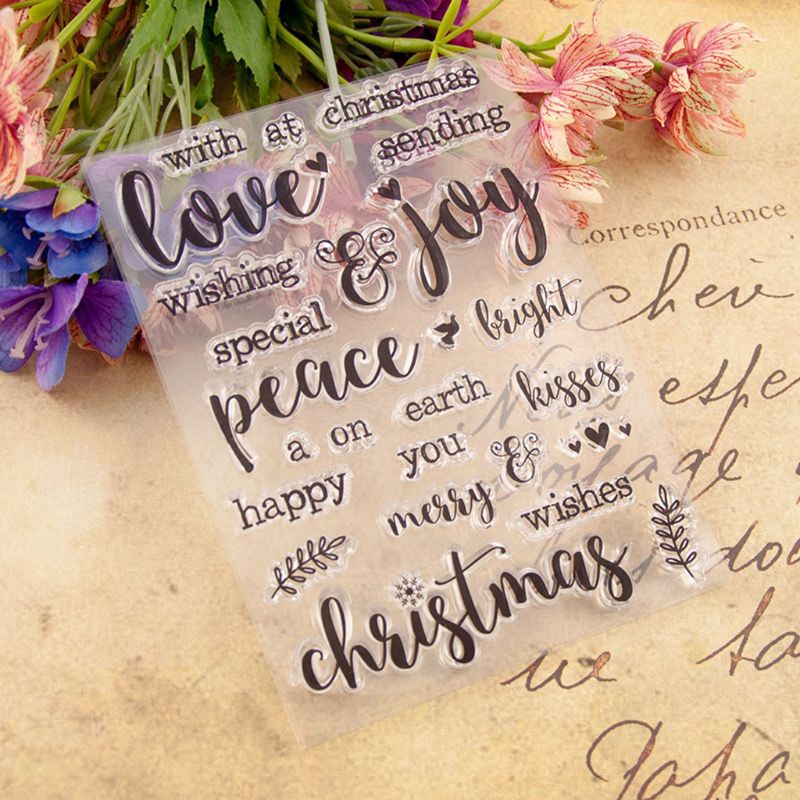 with at christmas
love sending
wishing & joy
special
peace bright
a on earth kisses
happy you &
merry wishes
christmas
Correspondance
ue ta
Papa